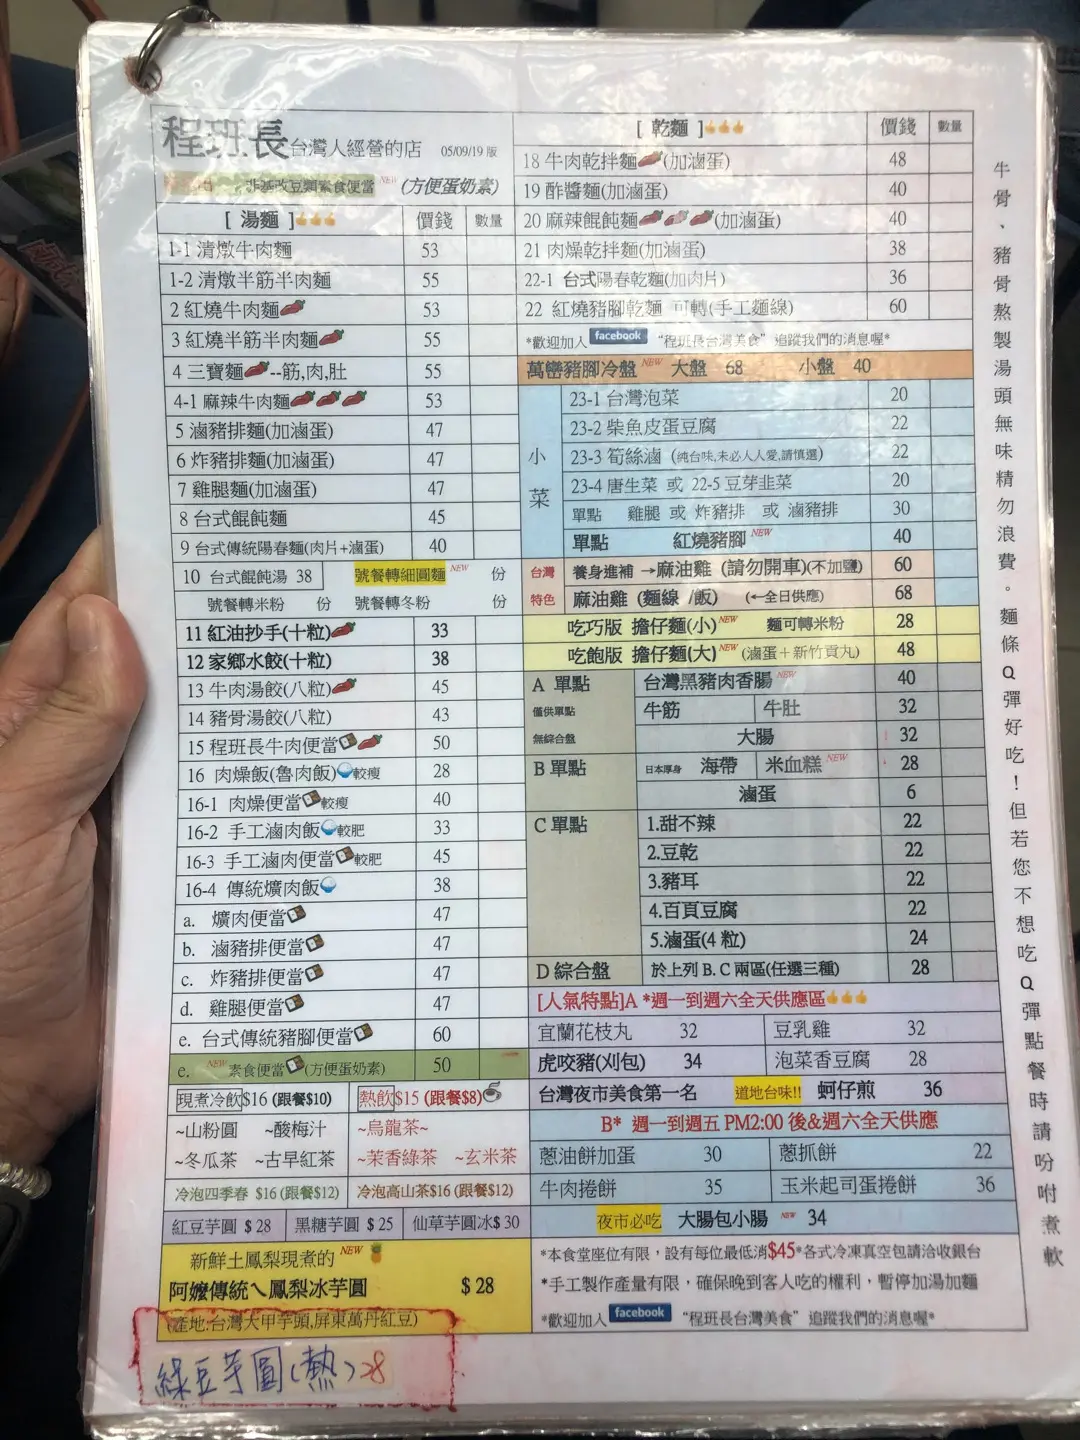 程班長台灣人經營的店 05/09/19 版
非基改豆類素食便當 NEW (方便蛋奶素)
[ 湯麵 ] 價錢 數量
1-1 清燉牛肉麵 53
1-2 清燉半筋半肉麵 55
2 紅燒牛肉麵 53
3 紅燒半筋半肉麵 55
4 三寶麵--筋,肉,肚 55
4-1 麻辣牛肉麵 53
5 滷豬排麵(加滷蛋) 47
6 炸豬排麵(加滷蛋) 47
7 雞腿麵(加滷蛋) 47
8 台式餛飩麵 45
9 台式傳統陽春麵(肉片+滷蛋) 40
10 台式餛飩湯 38 號餐轉細圓麵 NEW 份
號餐轉米粉 份 號餐轉冬粉 份
11 紅油抄手(十粒) 33
12 家鄉水餃(十粒) 38
13 牛肉湯餃(八粒) 45
14 豬骨湯餃(八粒) 43
15 程班長牛肉便當 50
16 肉燥飯(魯肉飯) 較瘦 28
16-1 肉燥便當 較瘦 40
16-2 手工滷肉飯 較肥 33
16-3 手工滷肉便當 較肥 45
16-4 傳統爌肉飯 38
a. 爌肉便當 47
b. 滷豬排便當 47
c. 炸豬排便當 47
d. 雞腿便當 47
e. 台式傳統豬腳便當 60
e. NEW 素食便當 (方便蛋奶素) 50
現煮冷飲$16 (跟餐$10) 熱飲$15 (跟餐$8)
~山粉圓 ~酸梅汁 ~烏龍茶~
~冬瓜茶 ~古早紅茶 ~茉香綠茶 ~玄米茶
冷泡四季春 $16 (跟餐$12) 冷泡高山茶$16 (跟餐$12)
紅豆芋圓 $ 28 黑糖芋圓 $ 25 仙草芋圓冰$ 30
新鮮土鳳梨現煮的 NEW
阿嬤傳統ㄟ鳳梨冰芋圓 $ 28
(產地:台灣大甲芋頭,屏東萬丹紅豆)
綠豆芋圓(熱) 28
[ 乾麵 ] 價錢 數量
18 牛肉乾拌麵 (加滷蛋) 48
19 酢醬麵(加滷蛋) 40
20 麻辣餛飩麵 (加滷蛋) 40
21 肉燥乾拌麵(加滷蛋) 38
22-1 台式陽春乾麵(加肉片) 36
22 紅燒豬腳乾麵 可轉(手工麵線) 60
*歡迎加入 facebook “程班長台灣美食” 追蹤我們的消息喔*
萬巒豬腳冷盤 NEW 大盤 68 小盤 40
小菜
23-1 台灣泡菜 20
23-2 柴魚皮蛋豆腐 22
23-3 筍絲滷 (純台味,未必人人愛,請慎選) 22
23-4 唐生菜 或 22-5 豆芽韭菜 20
單點 雞腿 或 炸豬排 或 滷豬排 30
單點 紅燒豬腳 NEW 40
台灣 養身進補 →麻油雞 (請勿開車)(不加鹽) 60
特色 麻油雞 (麵線 /飯) (←全日供應) 68
吃巧版 擔仔麵(小) NEW 麵可轉米粉 28
吃飽版 擔仔麵(大) NEW (滷蛋＋新竹貢丸) 48
A 單點 台灣黑豬肉香腸 NEW 40
僅供單點 牛筋 牛肚 32
無綜合盤 大腸 32
B 單點 日本厚身 海帶 米血糕 NEW 28
滷蛋 6
C 單點 1.甜不辣 22
2.豆乾 22
3.豬耳 22
4.百頁豆腐 22
5.滷蛋(4 粒) 24
D 綜合盤 於上列 B. C 兩區(任選三種) 28
[人氣特點]A *週一到週六全天供應區
宜蘭花枝丸 32 豆乳雞 32
虎咬豬(刈包) 34 泡菜香豆腐 28
台灣夜市美食第一名 道地台味!! 蚵仔煎 36
B* 週一到週五 PM2:00 後&週六全天供應
蔥油餅加蛋 30 蔥抓餅 22
牛肉捲餅 35 玉米起司蛋捲餅 36
夜市必吃 大腸包小腸 NEW 34
*本食堂座位有限，設有每位最低消$45*各式冷凍真空包請洽收銀台
*手工製作產量有限，確保晚到客人吃的權利，暫停加湯加麵
*歡迎加入 facebook “程班長台灣美食” 追蹤我們的消息喔*
牛骨、豬骨熬製湯頭無味精勿浪費。麵條Q彈好吃！但若您不想吃Q彈點餐時請吩咐煮軟